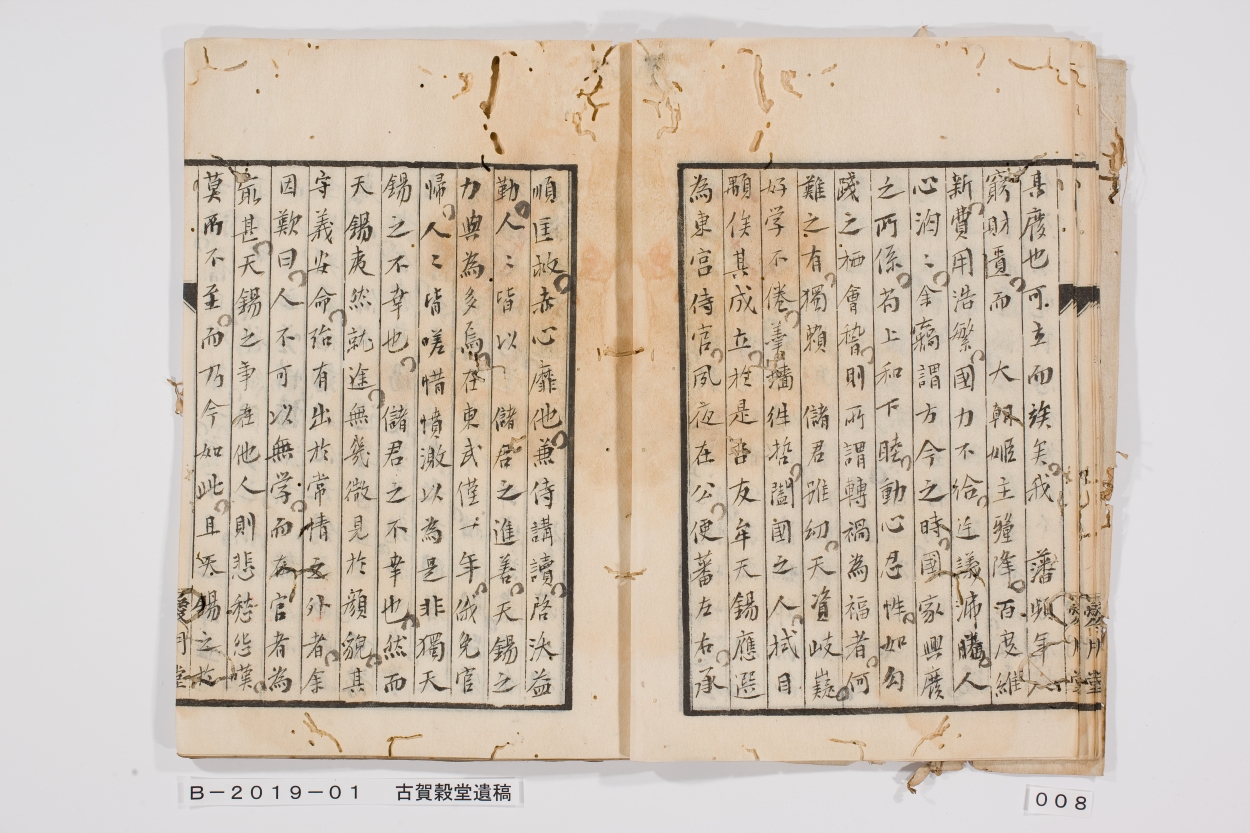 其廢也可立而竢矣我　藩頻年
窮財匱而　大朝姬主釐降百度維
新費用浩繁國力不給廷議沸騰人
心洶〻余竊謂方今之時國家興廢
之所係苟上和下睦動心忍性如勾
踐之栖會稽則所謂轉禍為福者何
難之有獨賴　儲君雖幼天資岐嶷
好学不倦羹墻往哲闔國之人拭目
顒俟其成立於是吾友牟天錫應選
為東宮侍官夙夜在公便蕃左右承
順匡救赤心靡他兼侍講讀啓沃益
勤人〻皆以　儲君之進善天錫之
力與為多焉在東武僅一年俄免官
帰人〻皆嗟惜憤激以為是非獨天
錫之不幸也　儲君之不幸也然而
天錫夷然就途無幾微見於顔貌其
守義安命殆有出於常情之外者余
因歎曰人不可以無学而在官者為
最甚天錫之事在他人則悲愁怨嘆
莫所不至而乃今如此且天錫之於
愛月堂
B－2019－01　古賀穀堂遺稿
008